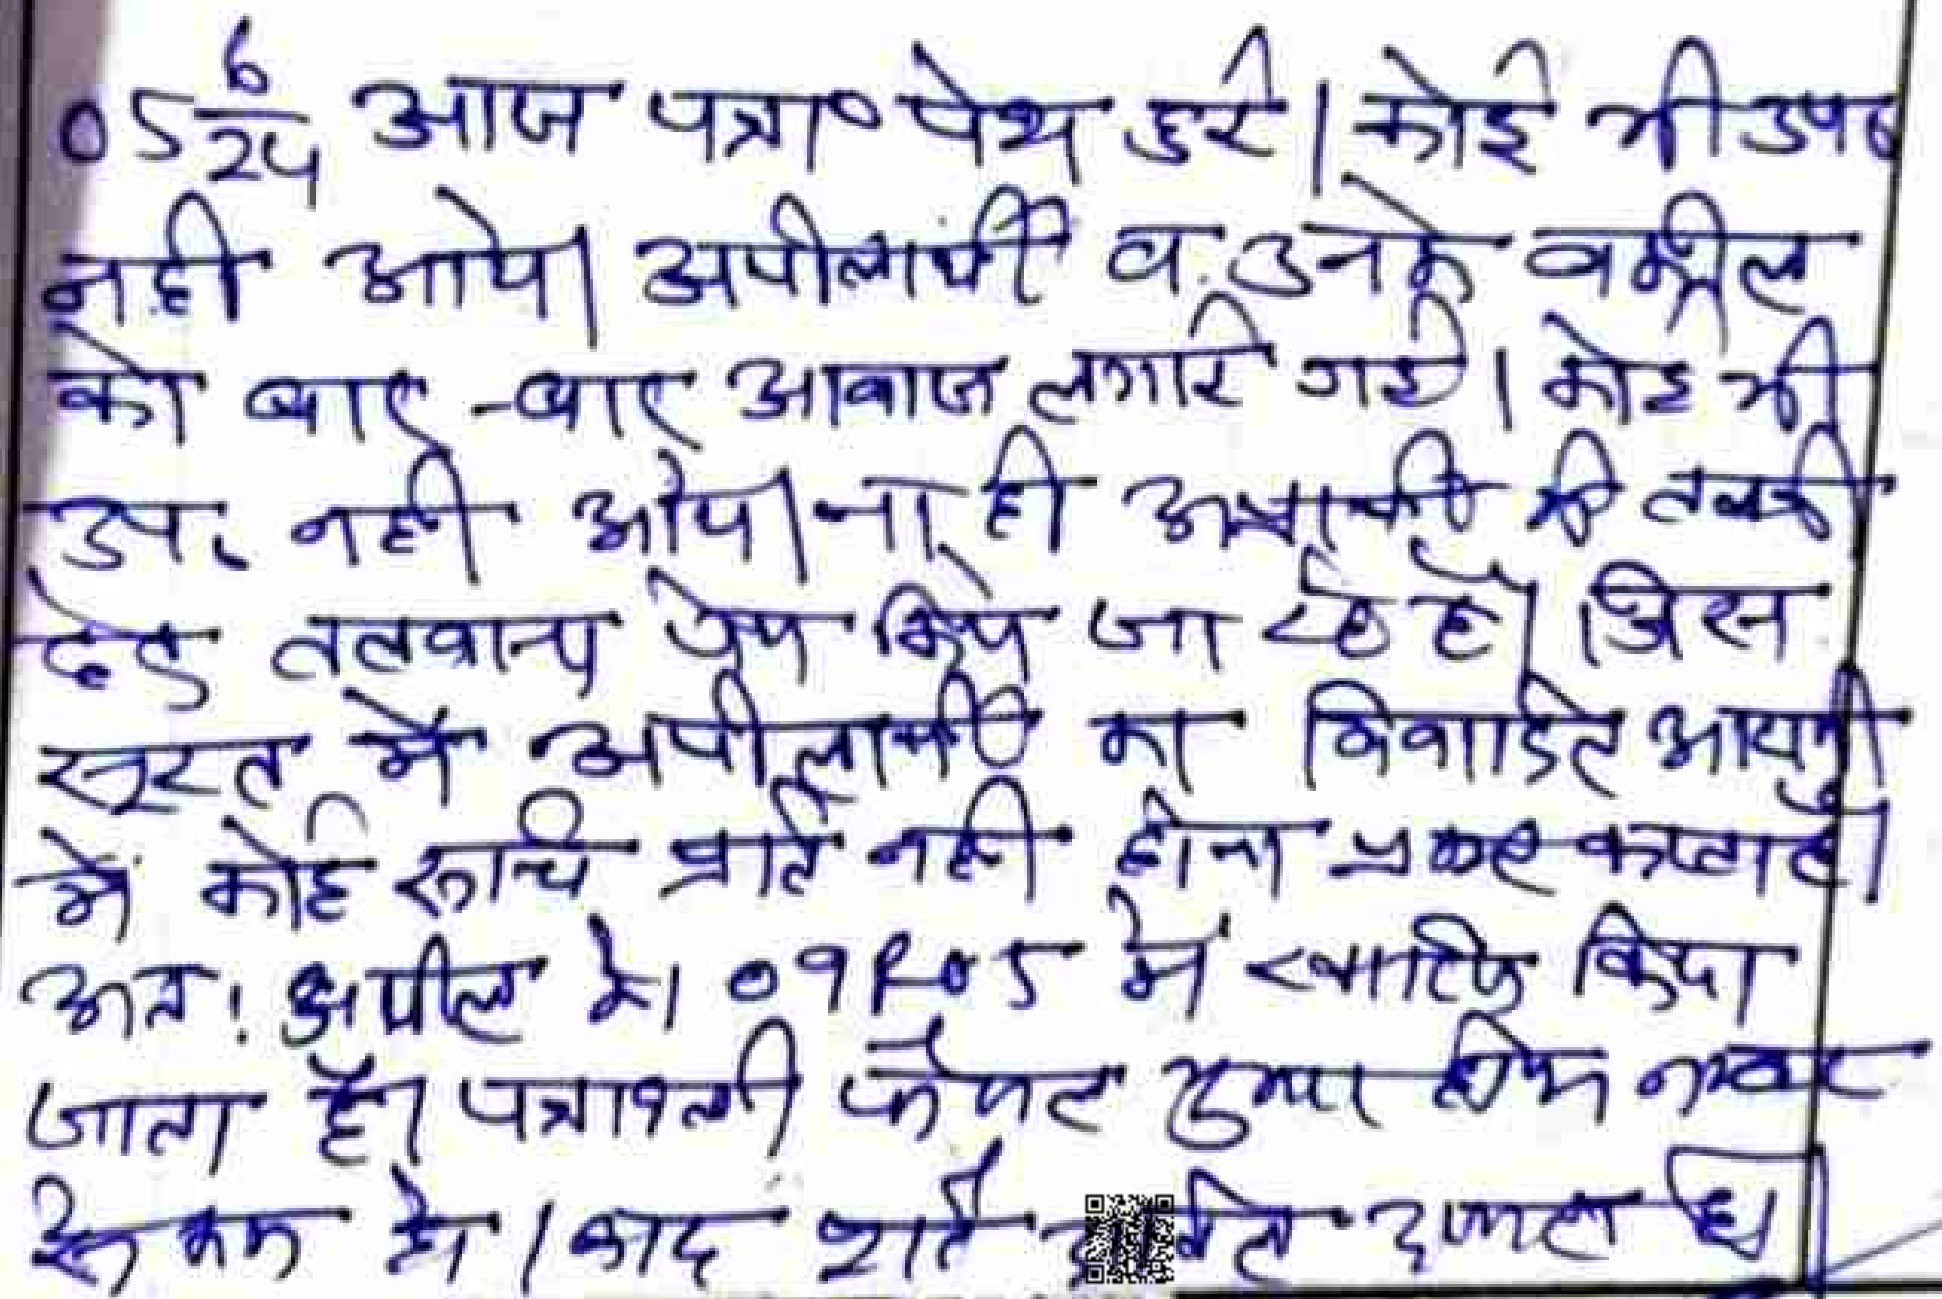 05 6/24 आज पत्रा० पेश हुई। कोई भी उप०
नही आये। अपीलार्थी व उनके वकील
को बार-बार आवाज लगाई गई। कोई भी
उप. नही आये। ना ही अपीलार्थी की तलबी
हेतु तलवाना पेश किये जा रहे है। जिस
सूरत में अपीलार्थी का
में कोई रूचि प्रति नही होना प्रकट करता है।
अतः अपील 09R05 में खारिज किया
जाता है। पत्रावली फैसल शुमार होकर नम्बर
से कम हो। बाद दाखिल